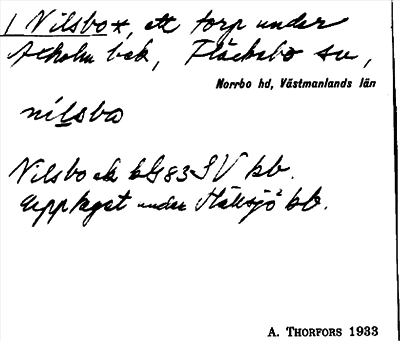 1 Nilsbo *, ett torp under
bek, Fläckebo sn,
Norrbo hd, Västmanlands län
nilsbo
Nilsbo ek bG83SV kb.
Upptaget under Hällsjö kb.
A. THORFORS 1933